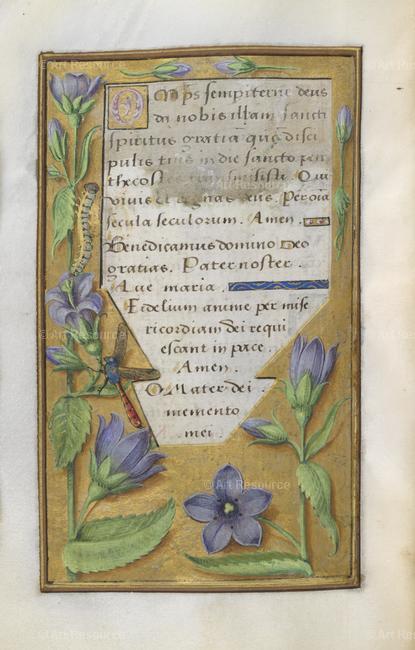 Omps sempiterne deus
da nobis illam sancti
spiritus gratiā quā disci
pulis tuis in die sancto pen
thecostes transmisisti. Qui
vivis et regnas deus. Per oīa
secula seculorum. Amen.
Benedicamus domino Deo
gratias. Pater noster.
Ave maria.
Fidelium anime per mise
ricordiam dei requi
escant in pace.
Amen.
O Mater dei
memento
mei.
© Art Resource